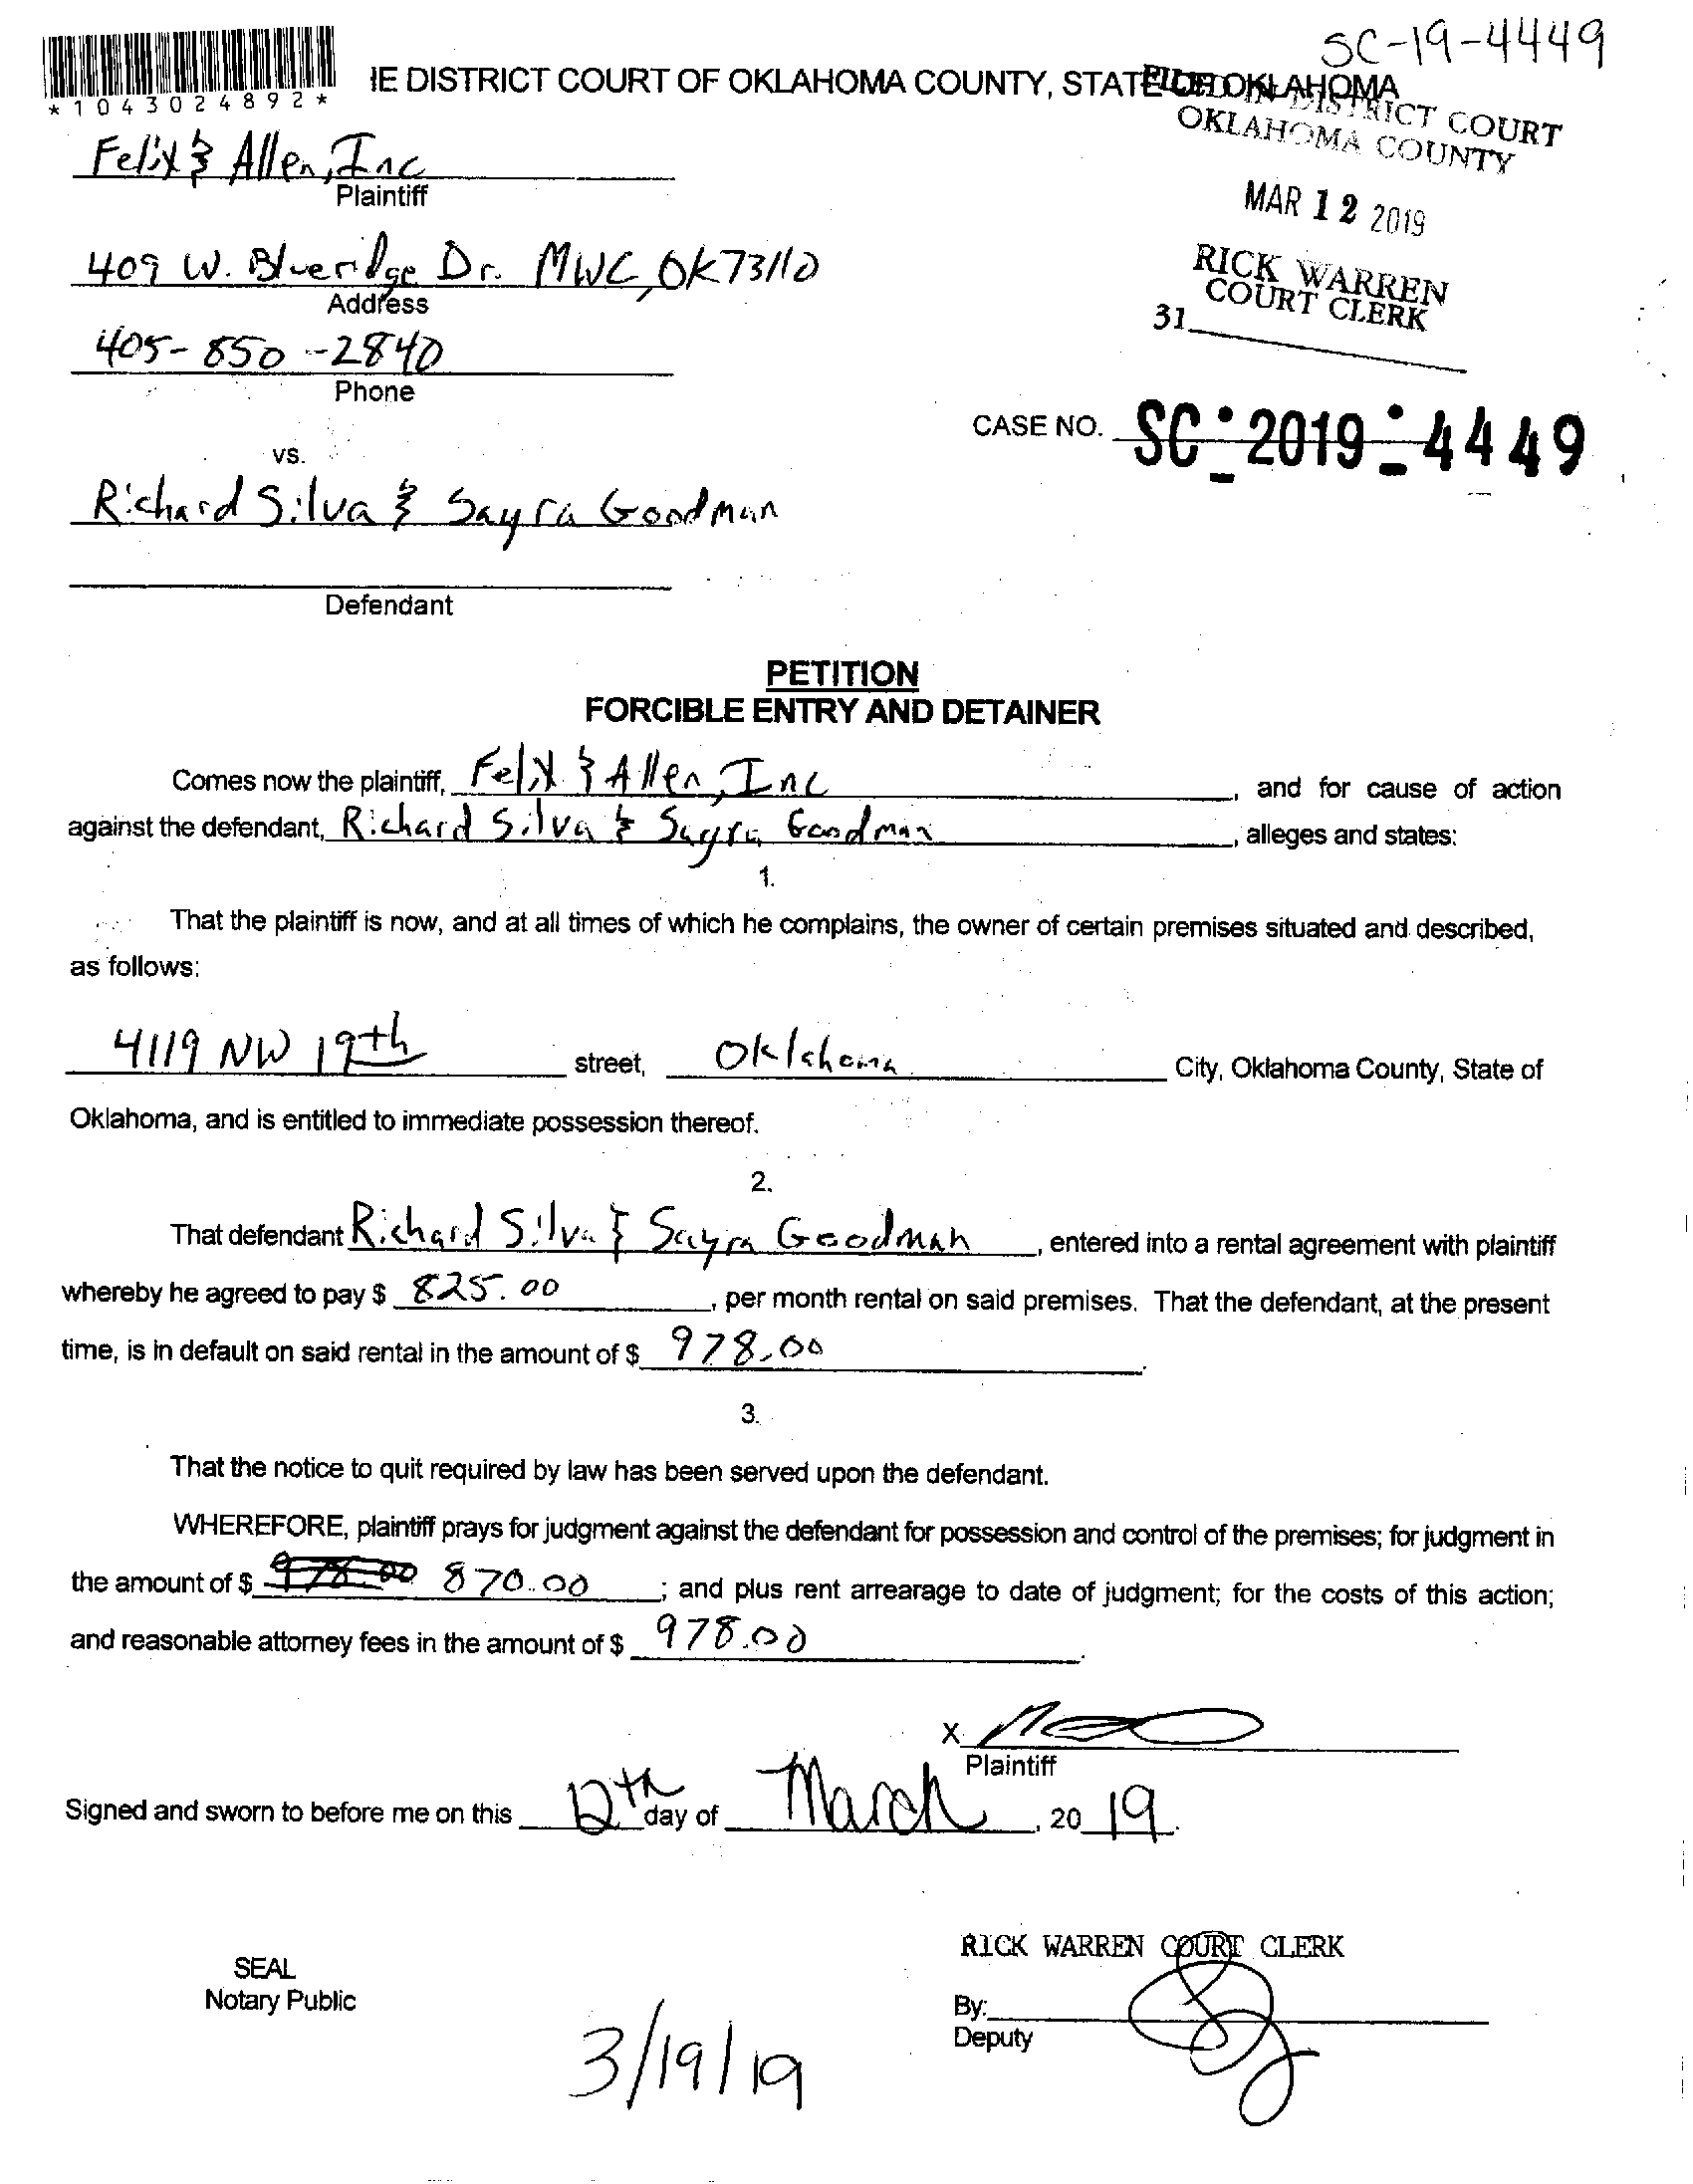 SC-19-4449
*1043024892*
IE DISTRICT COURT OF OKLAHOMA COUNTY, STATE OF OKLAHOMA
FILED IN DISTRICT COURT
OKLAHOMA COUNTY
Felix & Allen, Inc
Plaintiff
MAR 12 2019
409 W. Blueridge Dr. MWC, OK 73110
Address
RICK WARREN
COURT CLERK
31
405-850-2840
Phone
CASE NO. SC-2019-4449
vs.
Richard Silva & Sayra Goodman
Defendant
PETITION
FORCIBLE ENTRY AND DETAINER
Comes now the plaintiff, Felix & Allen, Inc, and for cause of action
against the defendant, Richard Silva & Sayra Goodman, alleges and states:
1.
That the plaintiff is now, and at all times of which he complains, the owner of certain premises situated and described,
as follows:
4119 NW 19th street, Oklahoma City, Oklahoma County, State of
Oklahoma, and is entitled to immediate possession thereof.
2.
That defendant Richard Silva & Sayra Goodman, entered into a rental agreement with plaintiff
whereby he agreed to pay $ 825.00, per month rental on said premises. That the defendant, at the present
time, is in default on said rental in the amount of $ 978.00.
3.
That the notice to quit required by law has been served upon the defendant.
WHEREFORE, plaintiff prays for judgment against the defendant for possession and control of the premises; for judgment in
the amount of $ 978.00 870.00; and plus rent arrearage to date of judgment; for the costs of this action;
and reasonable attorney fees in the amount of $ 978.00.
X
Plaintiff
Signed and sworn to before me on this 12th day of March, 20 19.
RICK WARREN COURT CLERK
SEAL
Notary Public
By:
Deputy
3/19/19